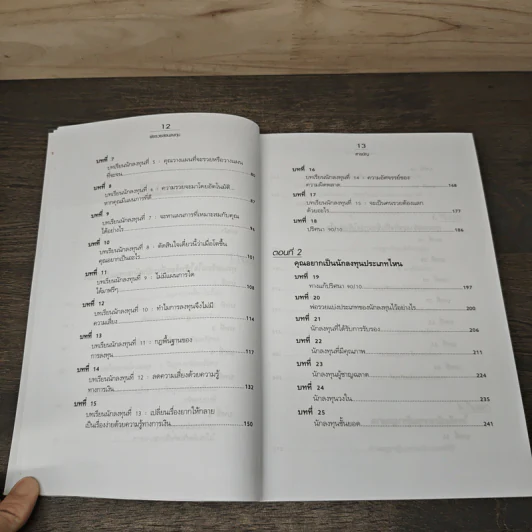 12
บทที่ 7
บทเรียนนักลงทุนที่ 5 : คุณวางแผนที่จะรวยหรือวางแผน
ที่จะจน
บทที่ 8
บทเรียนนักลงทุนที่ 6 : ความรวยจะมาโดยอัตโนมัติ..
หากคุณมีแผนการที่ดี
บทที่ 9
บทเรียนนักลงทุนที่ 7 : จะหาแผนการที่เหมาะสมกับคุณ
ได้อย่างไร
บทที่ 10
บทเรียนนักลงทุนที่ 8 : ตัดสินใจเดี๋ยวนี้ว่าเมื่อโตขึ้น
คุณอยากเป็นอะไร 101
บทที่ 11
บทเรียนนักลงทุนที่ 9 : ไม่มีแผนการใด
ได้มาฟรีๆ 108
บทที่ 12
บทเรียนนักลงทุนที่ 10 : ทำไมการลงทุนจึงไม่มี
ความเสี่ยง 114
บทที่ 13
บทเรียนนักลงทุนที่ 11 : กฎพื้นฐานของ
การลงทุน 117
บทที่ 14
บทเรียนนักลงทุนที่ 12 : ลดความเสี่ยงด้วยความรู้
ทางการเงิน 132
บทที่ 15
บทเรียนนักลงทุนที่ 13 : เปลี่ยนเรื่องยากให้กลาย
เป็นเรื่องง่ายด้วยความรู้ทางการเงิน 150
13
สารบัญ
บทที่ 16
บทเรียนนักลงทุนที่ 14 : ความอัศจรรย์ของ
ความผิดพลาด 168
บทที่ 17
บทเรียนนักลงทุนที่ 15 : จะเป็นคนรวยต้องแลก
ด้วยอะไร 177
บทที่ 18
ปริศนา 186
ตอนที่ 2
คุณอยากเป็นนักลงทุนประเภทไหน
บทที่ 19
ทางแก้ปริศนา 197
บทที่ 20
พ่อรวยแบ่งประเภทของนักลงทุนไว้อย่างไร 200
บทที่ 21
นักลงทุนที่ได้รับการรับรอง 206
บทที่ 22
นักลงทุนที่มีคุณภาพ 211
บทที่ 23
นักลงทุนผู้ชาญฉลาด 224
บทที่ 24
นักลงทุนวงใน 235
บทที่ 25
นักลงทุนชั้นยอด 241